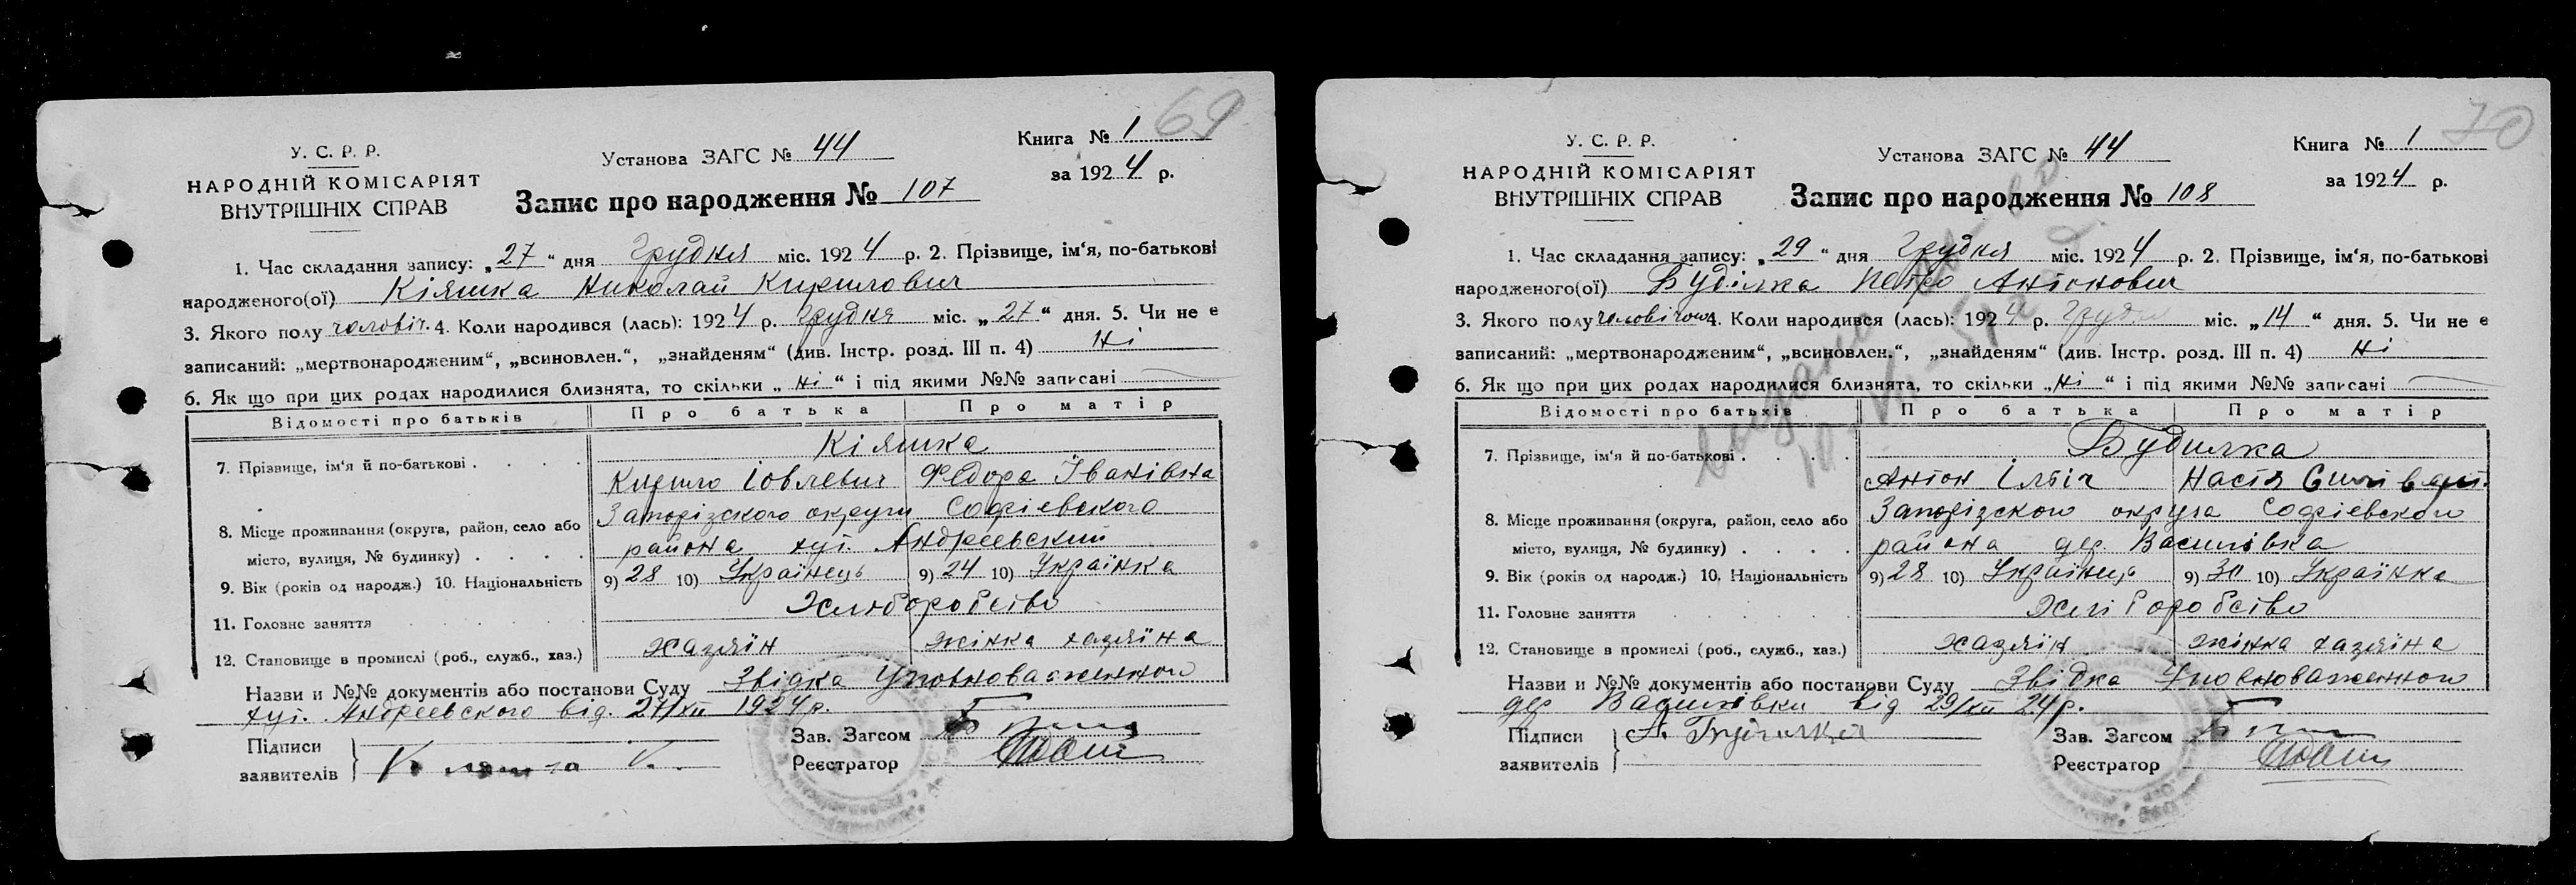 69
У. С. Р. Р.
НАРОДНІЙ КОМІСАРІЯТ
ВНУТРІШНІХ СПРАВ
Установа ЗАГС № 44
Книга № 1
за 1924 р.
Запис про народження № 107
1. Час складання запису: „27“ дня Грудня міс. 1924 р. 2. Прізвище, ім‘я, по-батькові
народженого(ої) Кіяшка Николай Кирилович
3. Якого полу чоловіч. 4. Коли народився (лась): 1924 р. Грудня міс. „27“ дня. 5. Чи не е
записаний: „мертвонародженим“, „всиновлен.“, „знайденям“ (див. Інстр. розд. III п. 4) Ні
6. Як що при цих родах народилися близнята, то скільки „Ні“ і під якими №№ записані
Відомості про батьків Про батька Про матір
7. Прізвище, ім‘я й по-батькові . . . . Кіяшка
Кирило Іовлевич Федора Іванівна
8. Місце проживання (округа, район, село або місто, вулиця, № будинку) . . . . Запорізского округи Софіевского
района хут. Андреевский
9. Вік (років од народж.) 10. Національність 9) 28 10) Українець 9) 24 10) Українка
11. Головне заняття Хлюборобство
12. Становище в промислі (роб., служб., хаз.) хазяїн жінка хазяїна
Назви и №№ документів або постанови Суду Звідка Уповноваженного
хут. Андреевского від. 27/XII 1924 р.
Підписи
заявителів
Зав. Загсом
Реєстратор
70
У. С. Р. Р.
НАРОДНІЙ КОМІСАРІЯТ
ВНУТРІШНІХ СПРАВ
Установа ЗАГС № 44
Книга № 1
за 1924 р.
Запис про народження № 108
1. Час складання запису: „29“ дня Грудня міс. 1924 р. 2. Прізвище, ім‘я, по-батькові
народженого(ої) Буділка Петро Антонович
3. Якого полу чоловічого 4. Коли народився (лась): 1924 р. Грудня міс. „14“ дня. 5. Чи не е
записаний: „мертвонародженим“, „всиновлен.“, „знайденям“ (див. Інстр. розд. III п. 4) Ні
6. Як що при цих родах народилися близнята, то скільки „Ні“ і під якими №№ записані
Відомості про батьків Про батька Про матір
7. Прізвище, ім‘я й по-батькові . . . . Будилка
Антон Ілліч Настя
8. Місце проживання (округа, район, село або місто, вулиця, № будинку) . . . . Запорізского округа Софіевского
района дер. Василівка
9. Вік (років од народж.) 10. Національність 9) 28 10) Українець 9) 30 10) Українка
11. Головне заняття Хліборобство
12. Становище в промислі (роб., служб., хаз.) хазяїн жінка хазяїна
Назви и №№ документів або постанови Суду Звідка Уповноваженного
дер Василівки від 29/XII 24 р.
Підписи
заявителів
А. Буділка
Зав. Загсом
Реєстратор